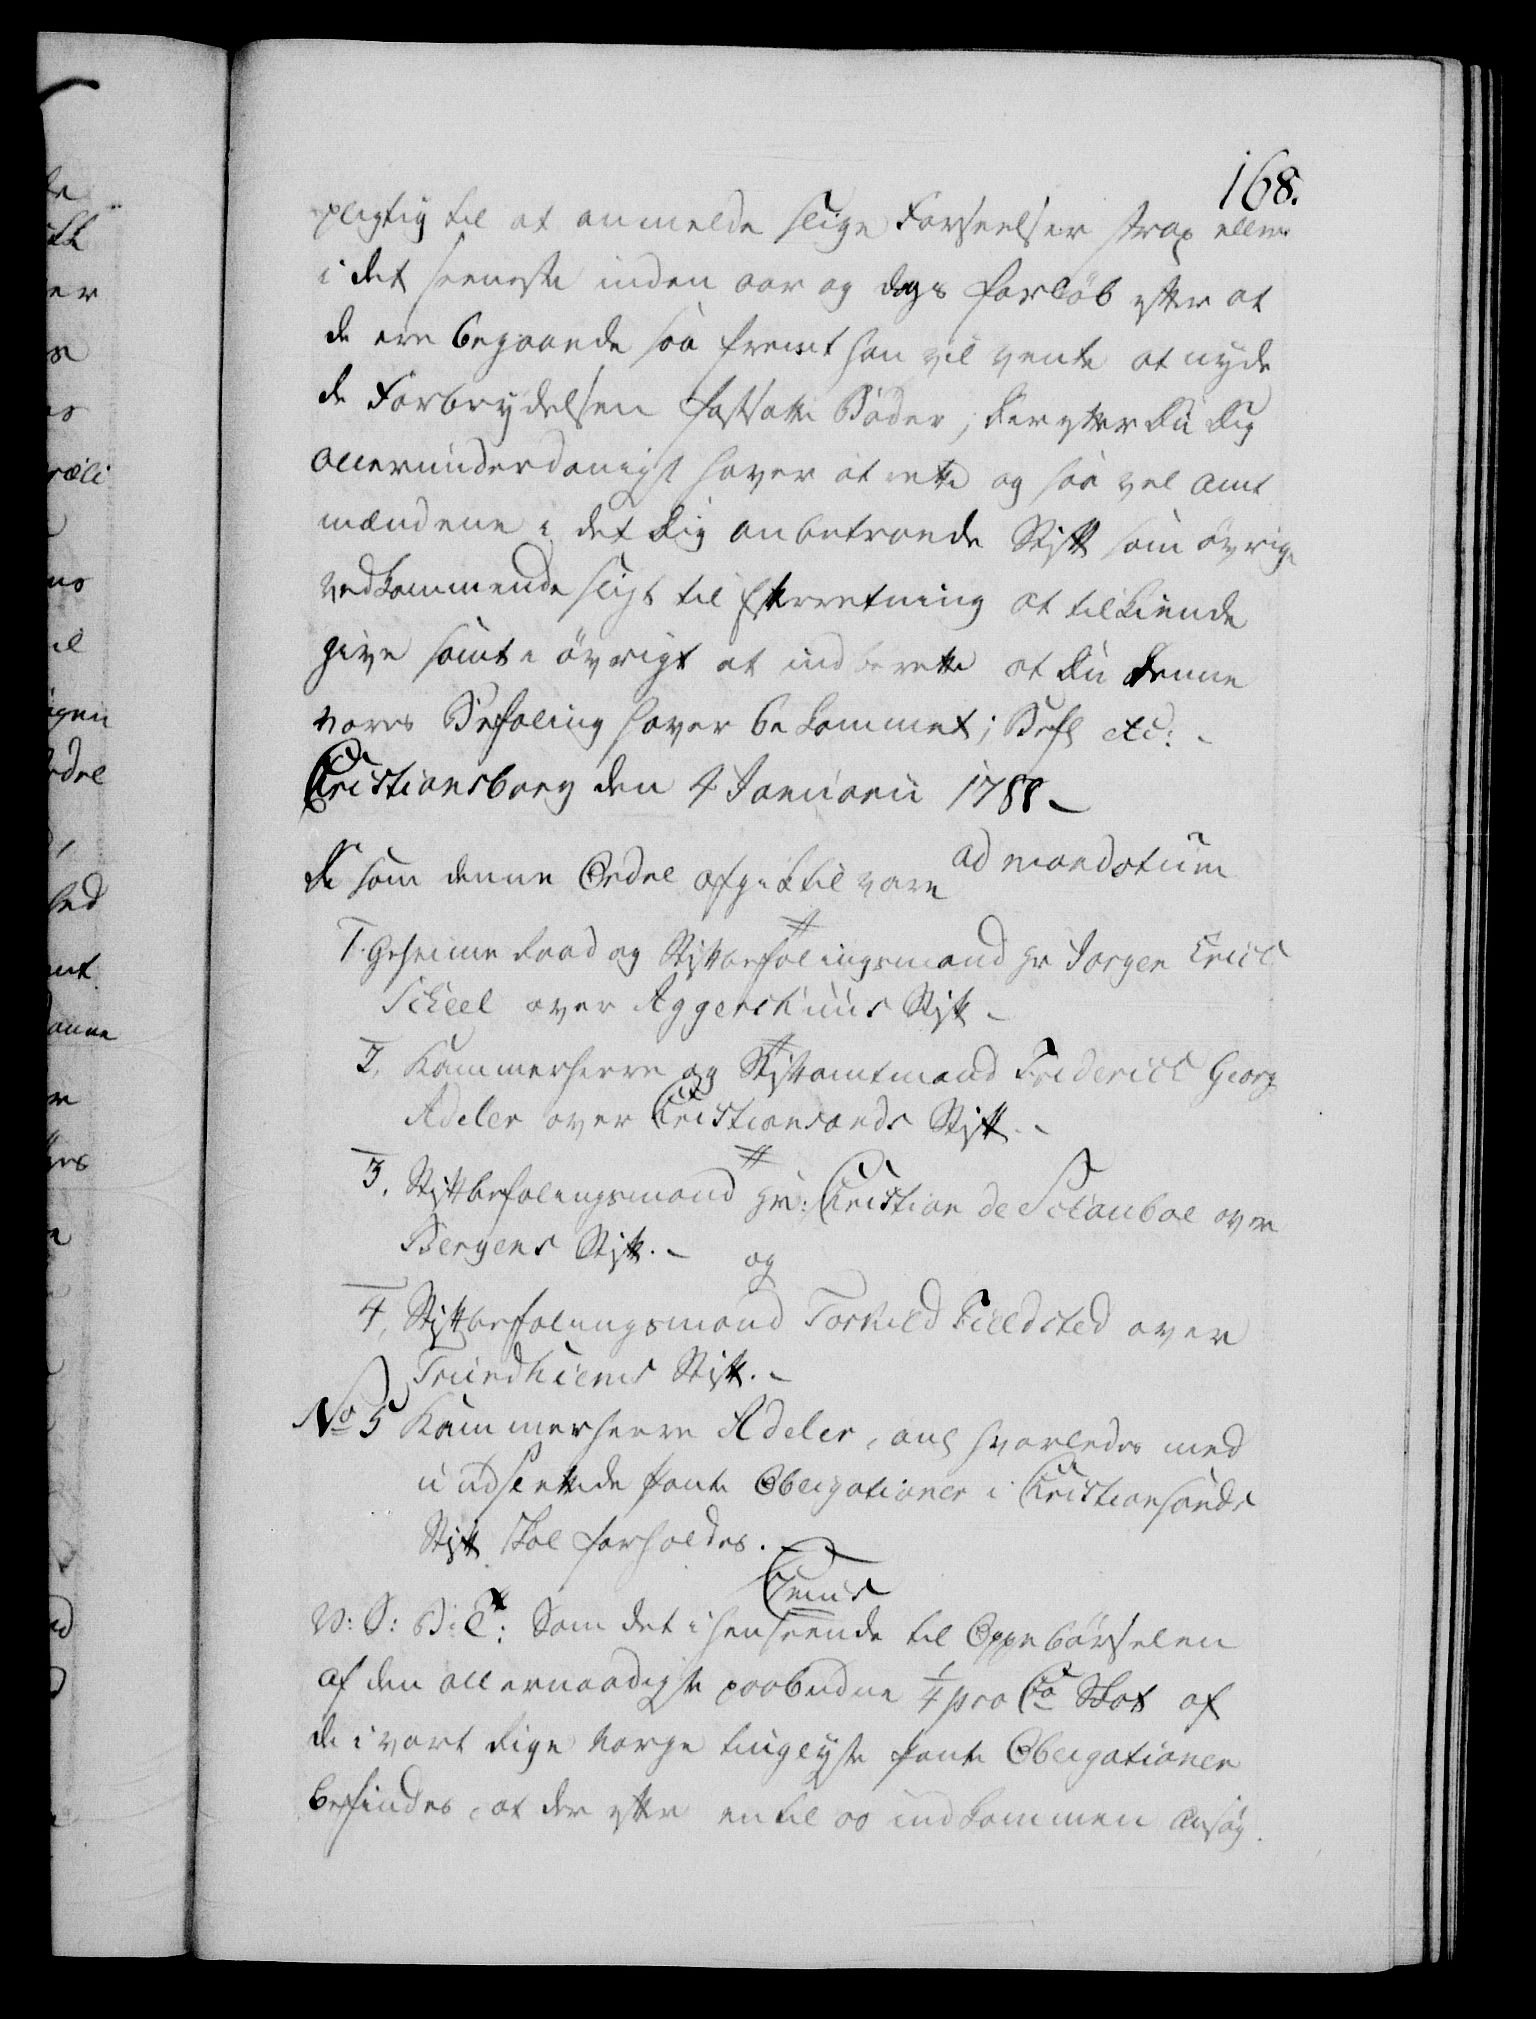 168.
pligtig til at anmelde slige Forseelser strax eller
i det seeneste inden aar og dags forløb efter at
de ere begaaede saa fremt han vil vente at nyde
de Forbrydelsen fastsatte Bøder; Derefter Du Dig
allerunderdanigst haver at rette og saa vel Amt
mændene i det Dig anbetroede Stift som øvrige
vedkommende sligt til Efterretning at tilkiende
give samt i øvrigt at indberette at Du denne
vores Befaling haver bekommet; Befl etc: -
Christiansborg den 4 Januarii 1788 -
ad mandatum
De som denne Ordre afgik til vare
1. Geheime Raad og Stiftbefalingsmand Hr Jørgen Erich
Scheel over Aggershuus Stift -
2. Kammerherre og Stiftamtmand Friderich Georg
Adeler over Christiansands Stift. -
3. Stiftbefalingsmand Hr: Christian de Schouboe over
Bergens Stift. - og
4. Stiftbefalingsmand Torkild Fieldsted over
Trundhiems Stift. -
No 5 Kammerherre Adeler, anl hvorledes med
uudslettede Pante Obligationer i Christiansands
Stift skal forholdes.
V: G: B: T: Som det i henseende til Oppebørselen
af den allernaadigste paabudne 1/4 pro Co Skat af
de i vort Rige Norge tinglyste Pante Obligationer
befindes, at der efter en til os indkommen Ansøg